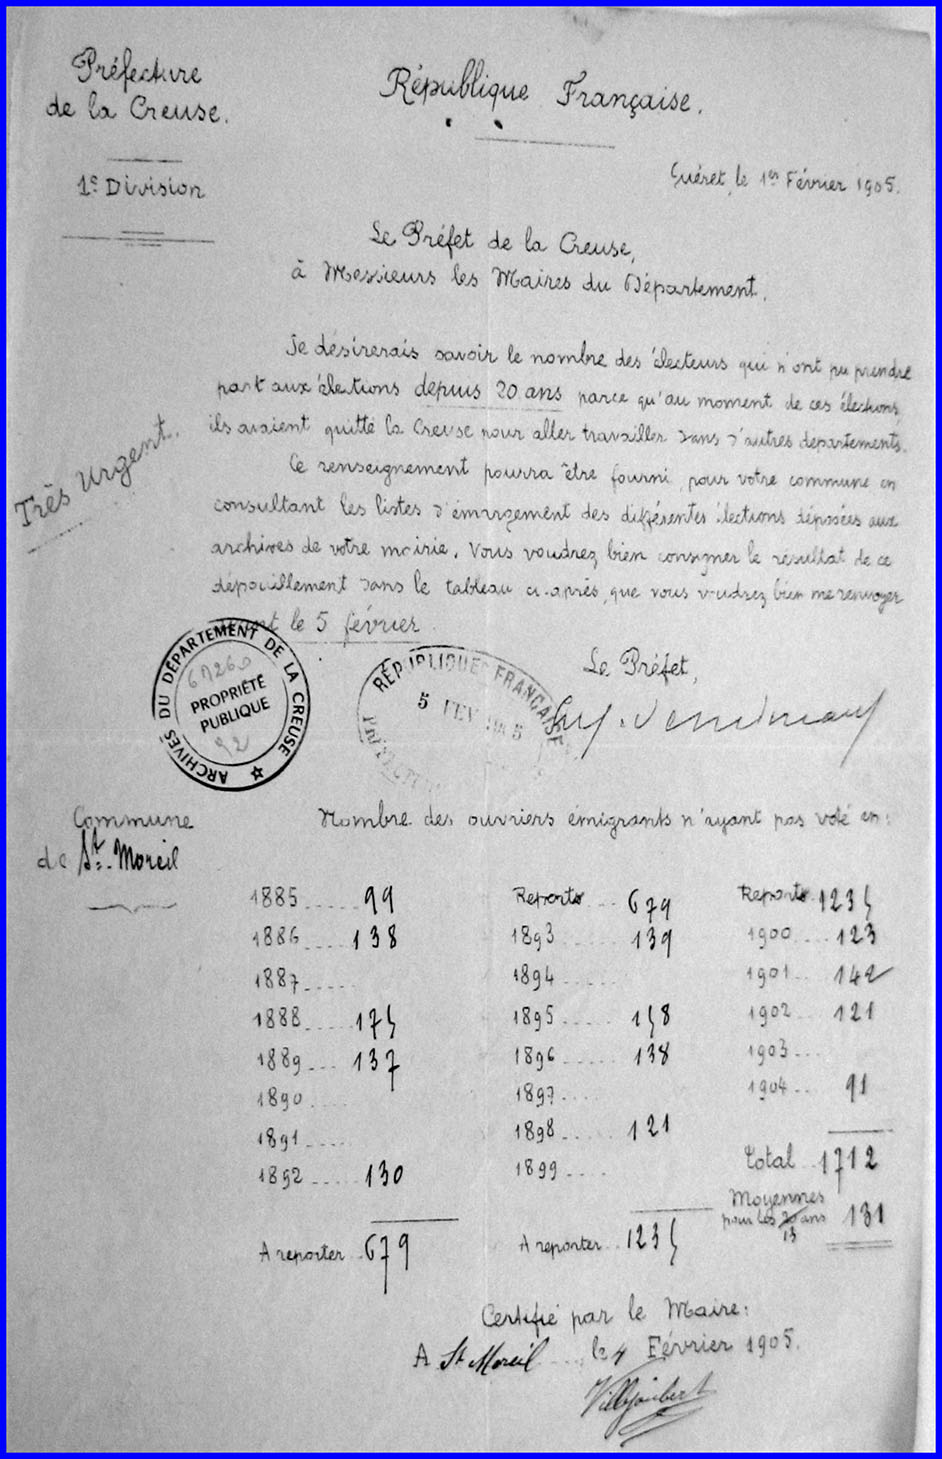 Préfecture
de la Creuse.
République Française.
1e Division
Guéret, le 1er Février 1905.
Le Préfet de la Creuse,
à Messieurs les Maires du Département.
Je désirerais savoir le nombre des électeurs qui n'ont pu prendre
part aux élections depuis 20 ans parce qu'au moment de ces élections,
ils avaient quitté la Creuse pour aller travailler dans d'autres départements.
Très Urgent.
Ce renseignement pourra être fourni, pour votre commune en
consultant les listes d'émargement des différentes élections déposées aux
archives de votre mairie. Vous voudrez bien consigner le résultat de ce
dépouillement dans le tableau ci-après, que vous voudrez bien me renvoyer
avant le 5 février.
ARCHIVES DU DÉPARTEMENT DE LA CREUSE
PROPRIÉTÉ
PUBLIQUE
92
RÉPUBLIQUE FRANÇAISE
5 FEV 1905
Le Préfet,
Commune
de St. Moreil
Nombre des ouvriers émigrants n'ayant pas voté en:
1885 ..... 99 Reports ... 679 Reports 1235
1886 .... 138 1893 ..... 139 1900 ... 123
1887 ..... 1894 ..... 1901 .. 142
1888 .... 175 1895 ..... 158 1902 .. 121
1889 ... 137 1896 ..... 138 1903 ...
1890 .... 1897 .... 1904 .. 91
1891 .... 1898 .... 121
1892 ..... 130 1899 .... Total 1712
Moyennes
pour les 20 ans 131
13
A reporter .. 679 A reporter .. 1235
Certifié par le Maire:
A St Moreil ... le 4 Février 1905.
Villejoubert